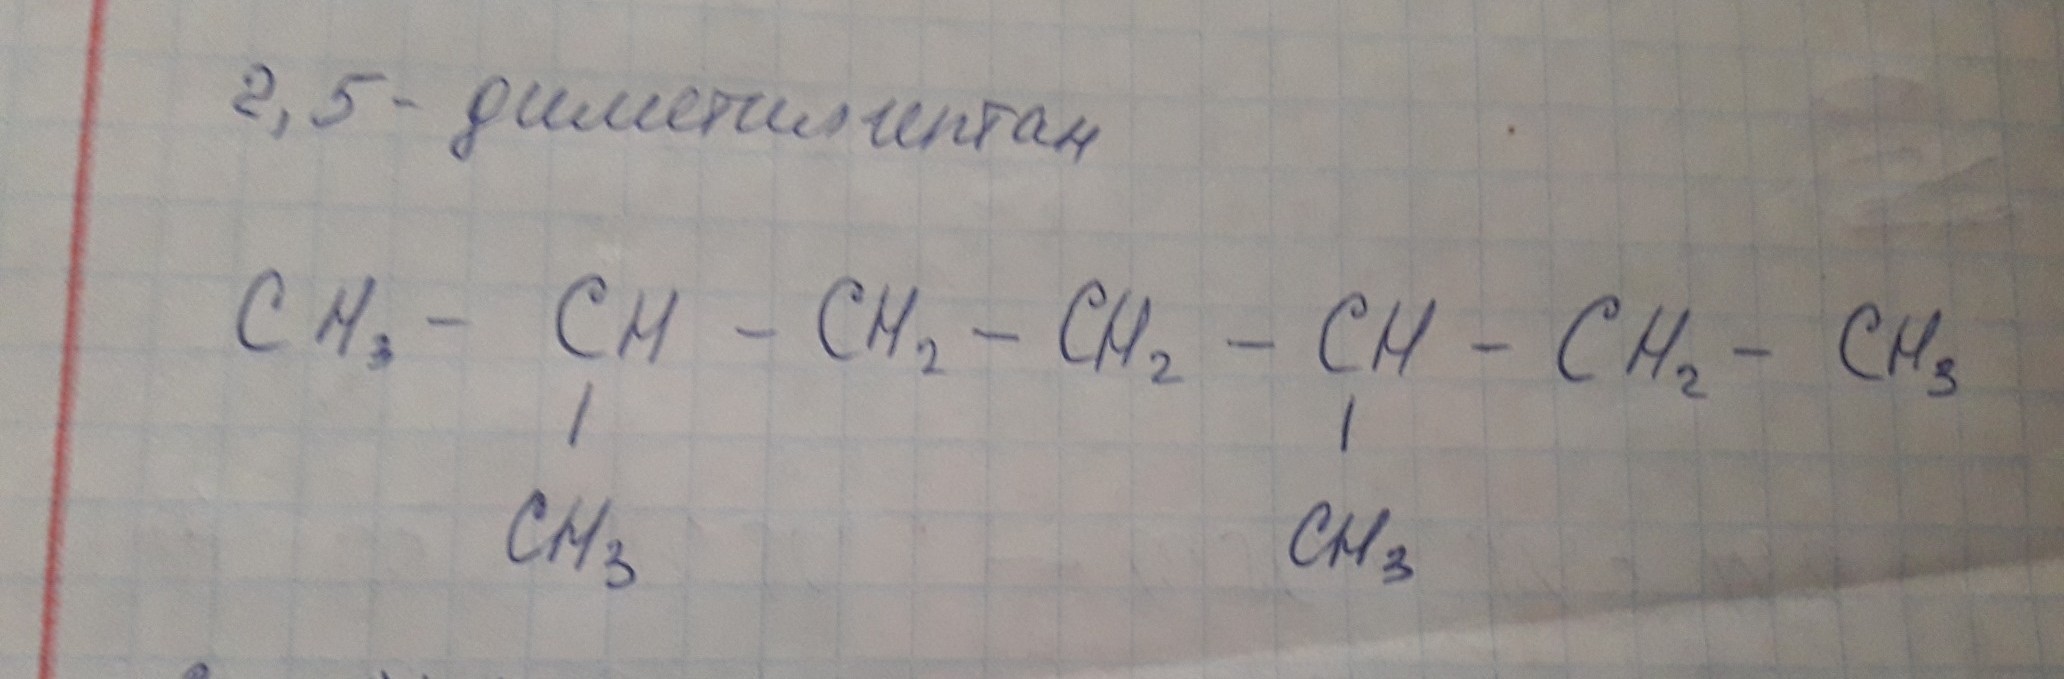 2,5- диметилгептан
CH₃ - CH - CH₂ - CH₂ - CH - CH₂ - CH₃
| |
CH₃ CH₃